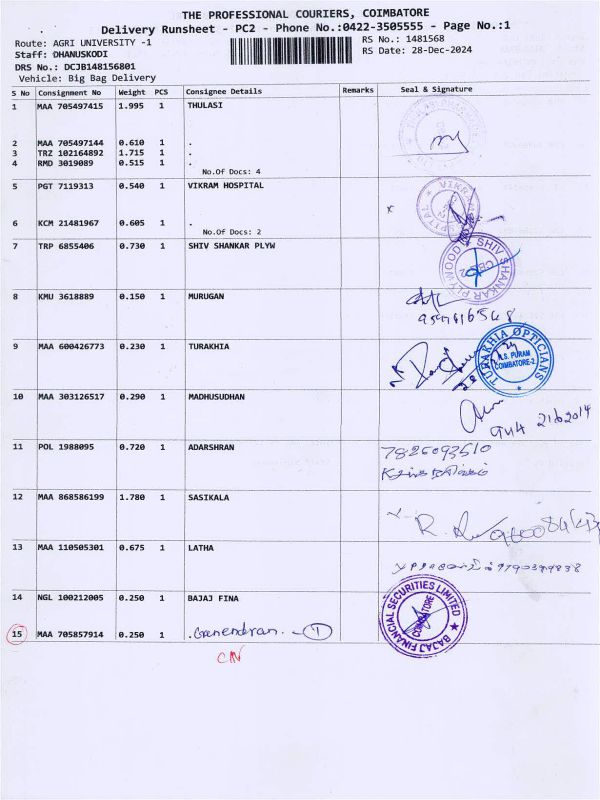 THE PROFESSIONAL COURIERS, COIMBATORE
Delivery Runsheet - PC2 - Phone No.:0422-3505555 - Page No.:1
Route: AGRI UNIVERSITY -1
RS No.: 1481568
Staff: DHANUSKODI
RS Date: 28-Dec-2024
DRS No.: DCJB148156801
Vehicle: Big Bag Delivery
S No Consignment No Weight PCS Consignee Details Remarks Seal & Signature
1 MAA 705497415 1.995 1 THULASI
2 MAA 705497144 0.610 1 .
3 TRZ 102164892 1.715 1 .
4 RMD 3019089 0.515 1 .
No.Of Docs: 4
5 PGT 7119313 0.540 1 VIKRAM HOSPITAL
6 KCM 21481967 0.605 1 .
No.Of Docs: 2
7 TRP 6855406 0.730 1 SHIV SHANKAR PLYW
SHIV SHANKAR PLYWOOD
CBE-2
8 KMU 3618889 0.150 1 MURUGAN
9 MAA 600426773 0.230 1 TURAKHIA
TURAKHIA OPTICIANS
R.S. PURAM
COIMBATORE-2
10 MAA 303126517 0.290 1 MADHUSUDHAN
11 POL 1988095 0.720 1 ADARSHRAN
7825093510
12 MAA 868586199 1.780 1 SASIKALA
13 MAA 110505301 0.675 1 LATHA
14 NGL 100212005 0.250 1 BAJAJ FINA
BAJAJ FINANCIAL SECURITIES LIMITED
COIMBATORE
15 MAA 705857914 0.250 1 . 1